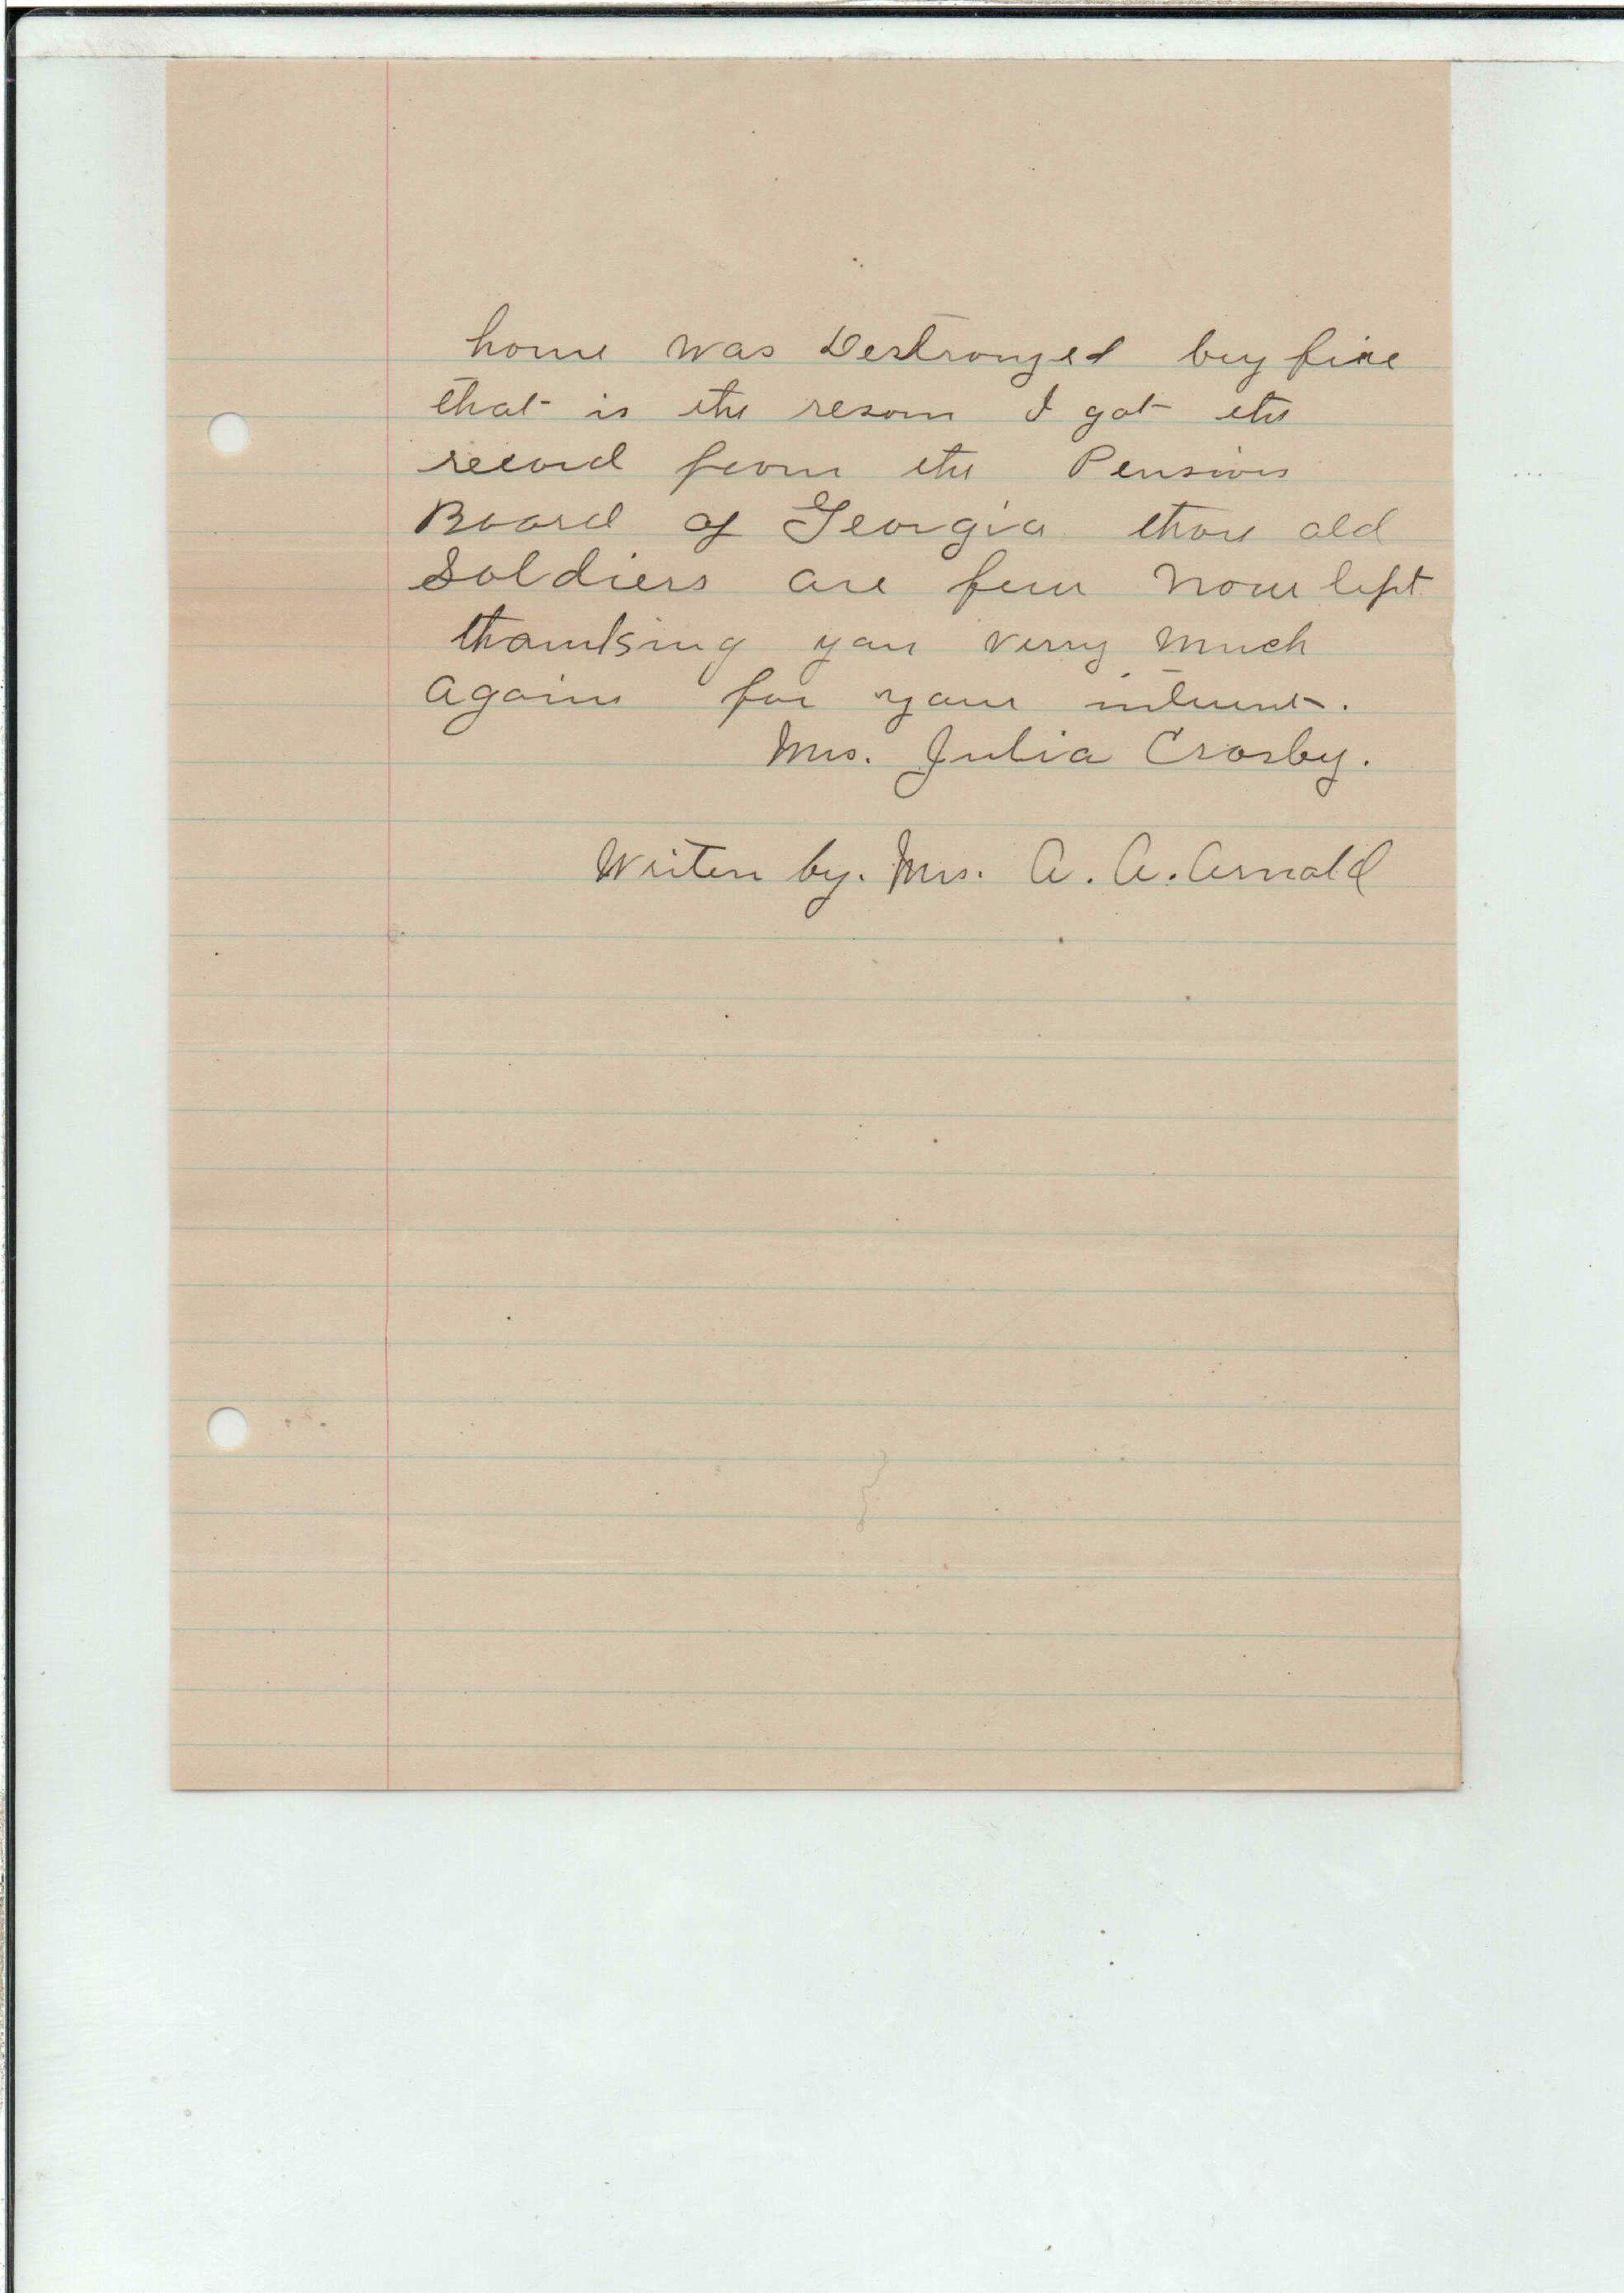 home was Destroyed by fire
that is the reson I got the
record from the Pension
Board of Georgia those old
Soldiers are few now left
thanking you verry much
again for your intrest.
Mrs. Julia Crosby.
Writen by. Mrs. A. A. Arnold